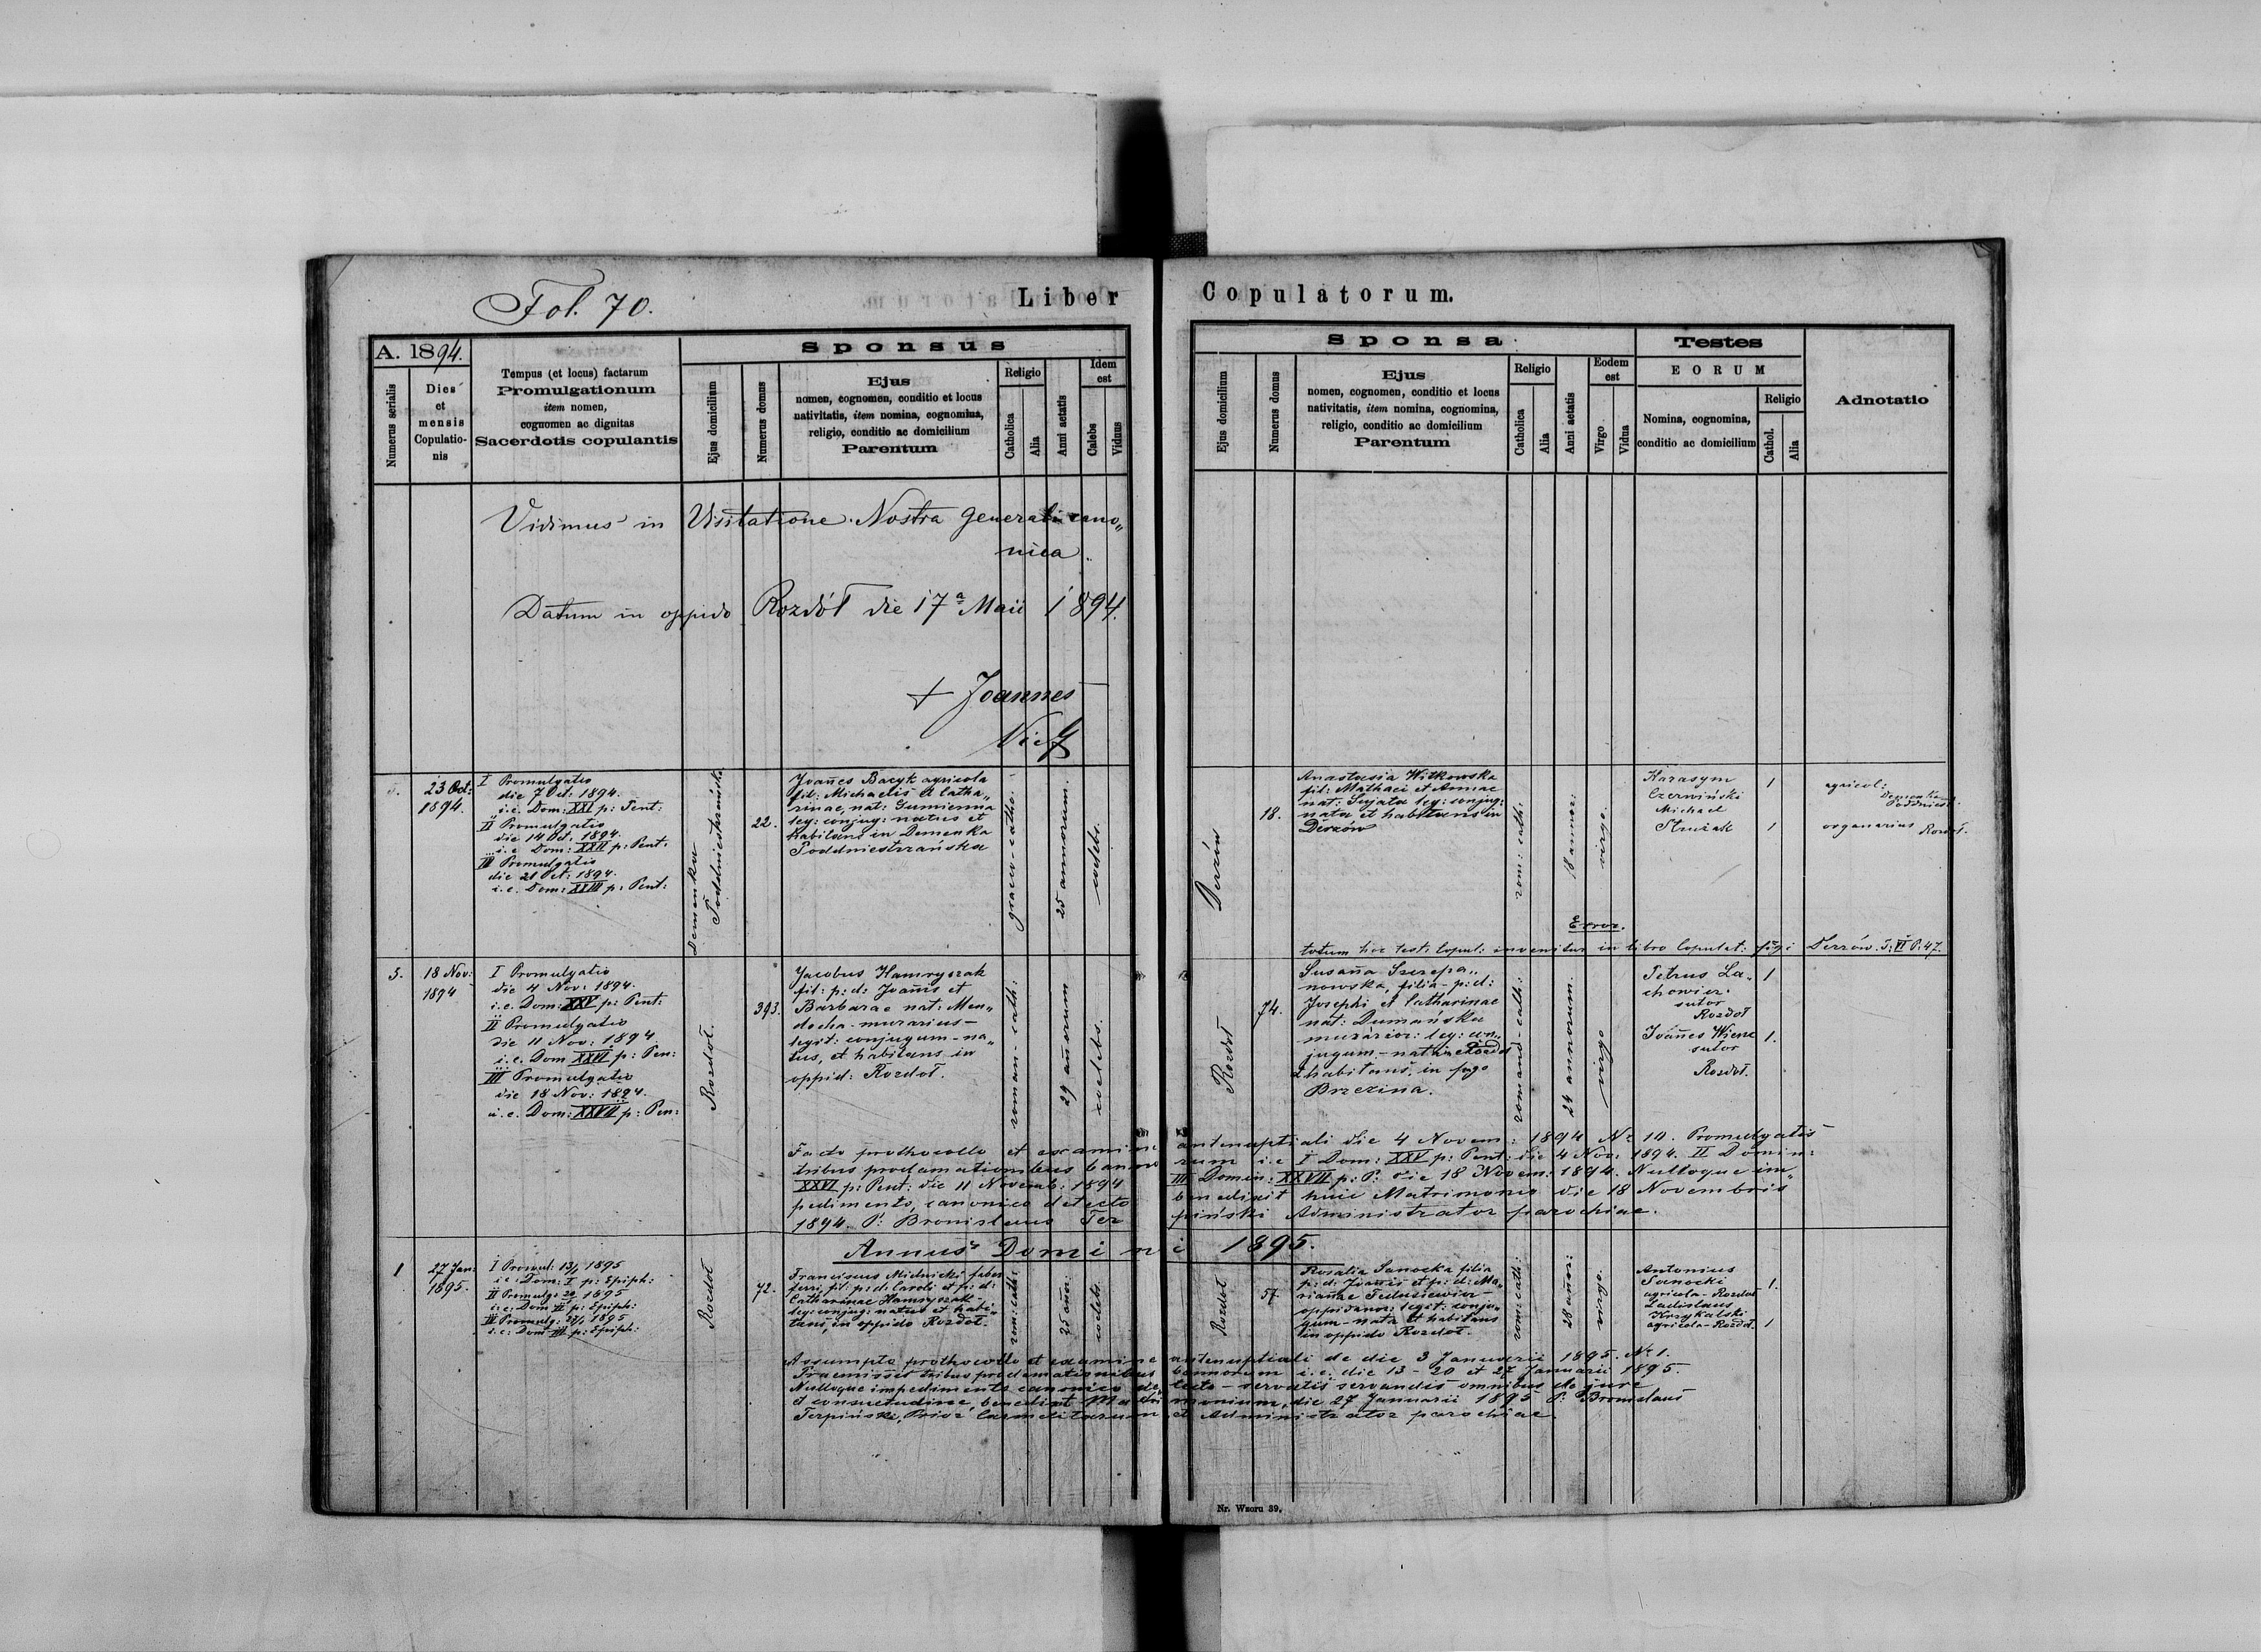 Fol. 70.
Liber Copulatorum.
A. 1894.
Numerus serialis
Dies
et
mensis
Copulatio-
nis
Tempus (et locus) factarum
Promulgationum
item nomen,
cognomen ac dignitas
Sacerdotis copulantis
Sponsus
Ejus domicilium
Numerus domus
Ejus
nomen, cognomen, conditio et locus
nativitatis, item nomina, cognomina,
religio, conditio ac domicilium
Parentum
Religio
Catholica
Alia
Anni aetatis
Idem
est
Calebs
Viduus
Sponsa
Ejus domicilium
Numerus domus
Ejus
nomen, cognomen, conditio et locus
nativitatis, item nomina, cognomina,
religio, conditio ac domicilium
Parentum
Religio
Catholica
Alia
Anni aetatis
Eodem
est
Virgo
Vidua
Testes
EORUM
Nomina, cognomina,
conditio ac domicilium
Religio
Cathol.
Alia
Adnotatio
Vidimus in Visitatione Nostra generali cano„
nica.
Datum in oppido Rozdół die 17ª Maii 1894.
+ Joannes
23 Oct:
1894.
I Promulgatio
die 7 Oct: 1894.
i.e. Dom: XXI p: Pent:
II Promulgatio
die 14 Oct. 1894.
i.e Dom: XXII p: Pent.
III Promulgatio
die 21 Oct: 1894.
i.e. Dom: XXIII p: Pent:
Demenka
Poddniestrzańska
22.
Joañes Bacyk agricola
fil: Michaelis et Catha„
rinae, nat: Gumienna
leg: conjug: natus et
habitans in Demenka
Poddniestrzańska
graeco-catho:
25 annorum.
coelebs.
Derzów
18.
Anastasia Witkowska
fil: Mathaei et Annae
nat: Sajata leg: conjug:
nata et habitans in
Derzów
rom: cath:
18 annor:
virgo.
Harasym
Czerwiński
Michael
Strużak
1
1
agricol:
Demenka
Poddniest.
organarius Rozdoł.
Error.
totum hoc test: Copul: invenitur in libro Copulat: pagi Derzów. T: VI P: 47.
5.
18 Nov:
1894
I Promulgatio
die 4 Nov: 1894.
i.e. Dom: XXV p: Pent:
II Promulgatio
die 11 Nov: 1894
i.e. Dom XXVI p: Pen:
III Promulgatio
die 18 Nov: 1894.
i.e. Dom: XXVII p: Pen:
Rozdoł.
393.
Jacobus Hamryszak
fil: p: d: Joañis et
Barbarae nat: Men„
docha - murarius -
legit: conjugum - na„
tus, et habitans in
oppid: Rozdoł.
roman-cath:
29 añorum
coelebs.
Rozdoł
74.
Susaña Szczepa„
nowska, filia - p: d:
Josephi et Catharinae
nat: Dumańska
murarior: leg: con„
jugum - nat: in Rozdoł
et habitans in pago
Brzezina.
romano-cath:
24 annorum.
virgo
Petrus La„
chowicz
sutor
Rozdoł
Joañes Wiene
sutor
Rozdoł.
1
1.
Facto prothocollo et examine antenuptiali die 4 Novem: 1894 Nº 10. Promulgatis
tribus proclamationibus banno rum i.e I Dom: XXV p: Pent: die 4 Nov: 1894. II Domin:
XXVI p: Pent: die 11 Novemb: 1894 III Domin: XXVII p: P: die 18 Novem: 1894. Nulloque im„
pedimento, canonico detecto benedixit huic Matrimonio die 18 Novembris
1894. P: Bronislaus Ter piński Administrator parochiae.
Annus Domini 1895.
1
27 Jan:
1895.
I Promul: 13/1 1895
i.e. Dom: I p: Epiph:
II Promulg: 20/1 1895
i.e: Dom II p: Epiph:
III Promulg: 27/1 1895
i.e: Dom III p: Epiph:
Rozdoł
72.
Franciscus Midnicki faber
ferri, fil: p: d: Caroli et p: d:
Catharinae Hamryszak -
leg: conjug: natus et habi„
tans, in oppido Rozdoł.
rom: cath:
25 añor:
coelebs.
Rozdoł
57
Rosalia Sanocka filia
p: d: Joañis et p: d: Ma„
riañae Fedusiewicz -
oppidanor: legit: conju„
gum - nata et habitans
in oppido Rozdoł.
rom: cath:
28 añor:
virgo.
Antonius
Sanocki
agricola - Rozdoł
Ladislaus
Krzykalski
agricola - Rozdoł.
1.
1
Assumpto prothocollo et examine antenuptiali de die 3 Januarii 1895. Nº 1.
Praemissis tribus proclamationibus bannorum i.e. die 13 - 20 et 27 Januarii 1895.
Nulloque impedimento canonico de„ tecto - servatis servandis omnibus de jure
et consuetudine, benedixit Matri monium, die 27 Januarii 1895 P: Bronislaus
Terpiński, Prior Carmelitarum et Administrator parochiae.
Nr. Wzoru 39.